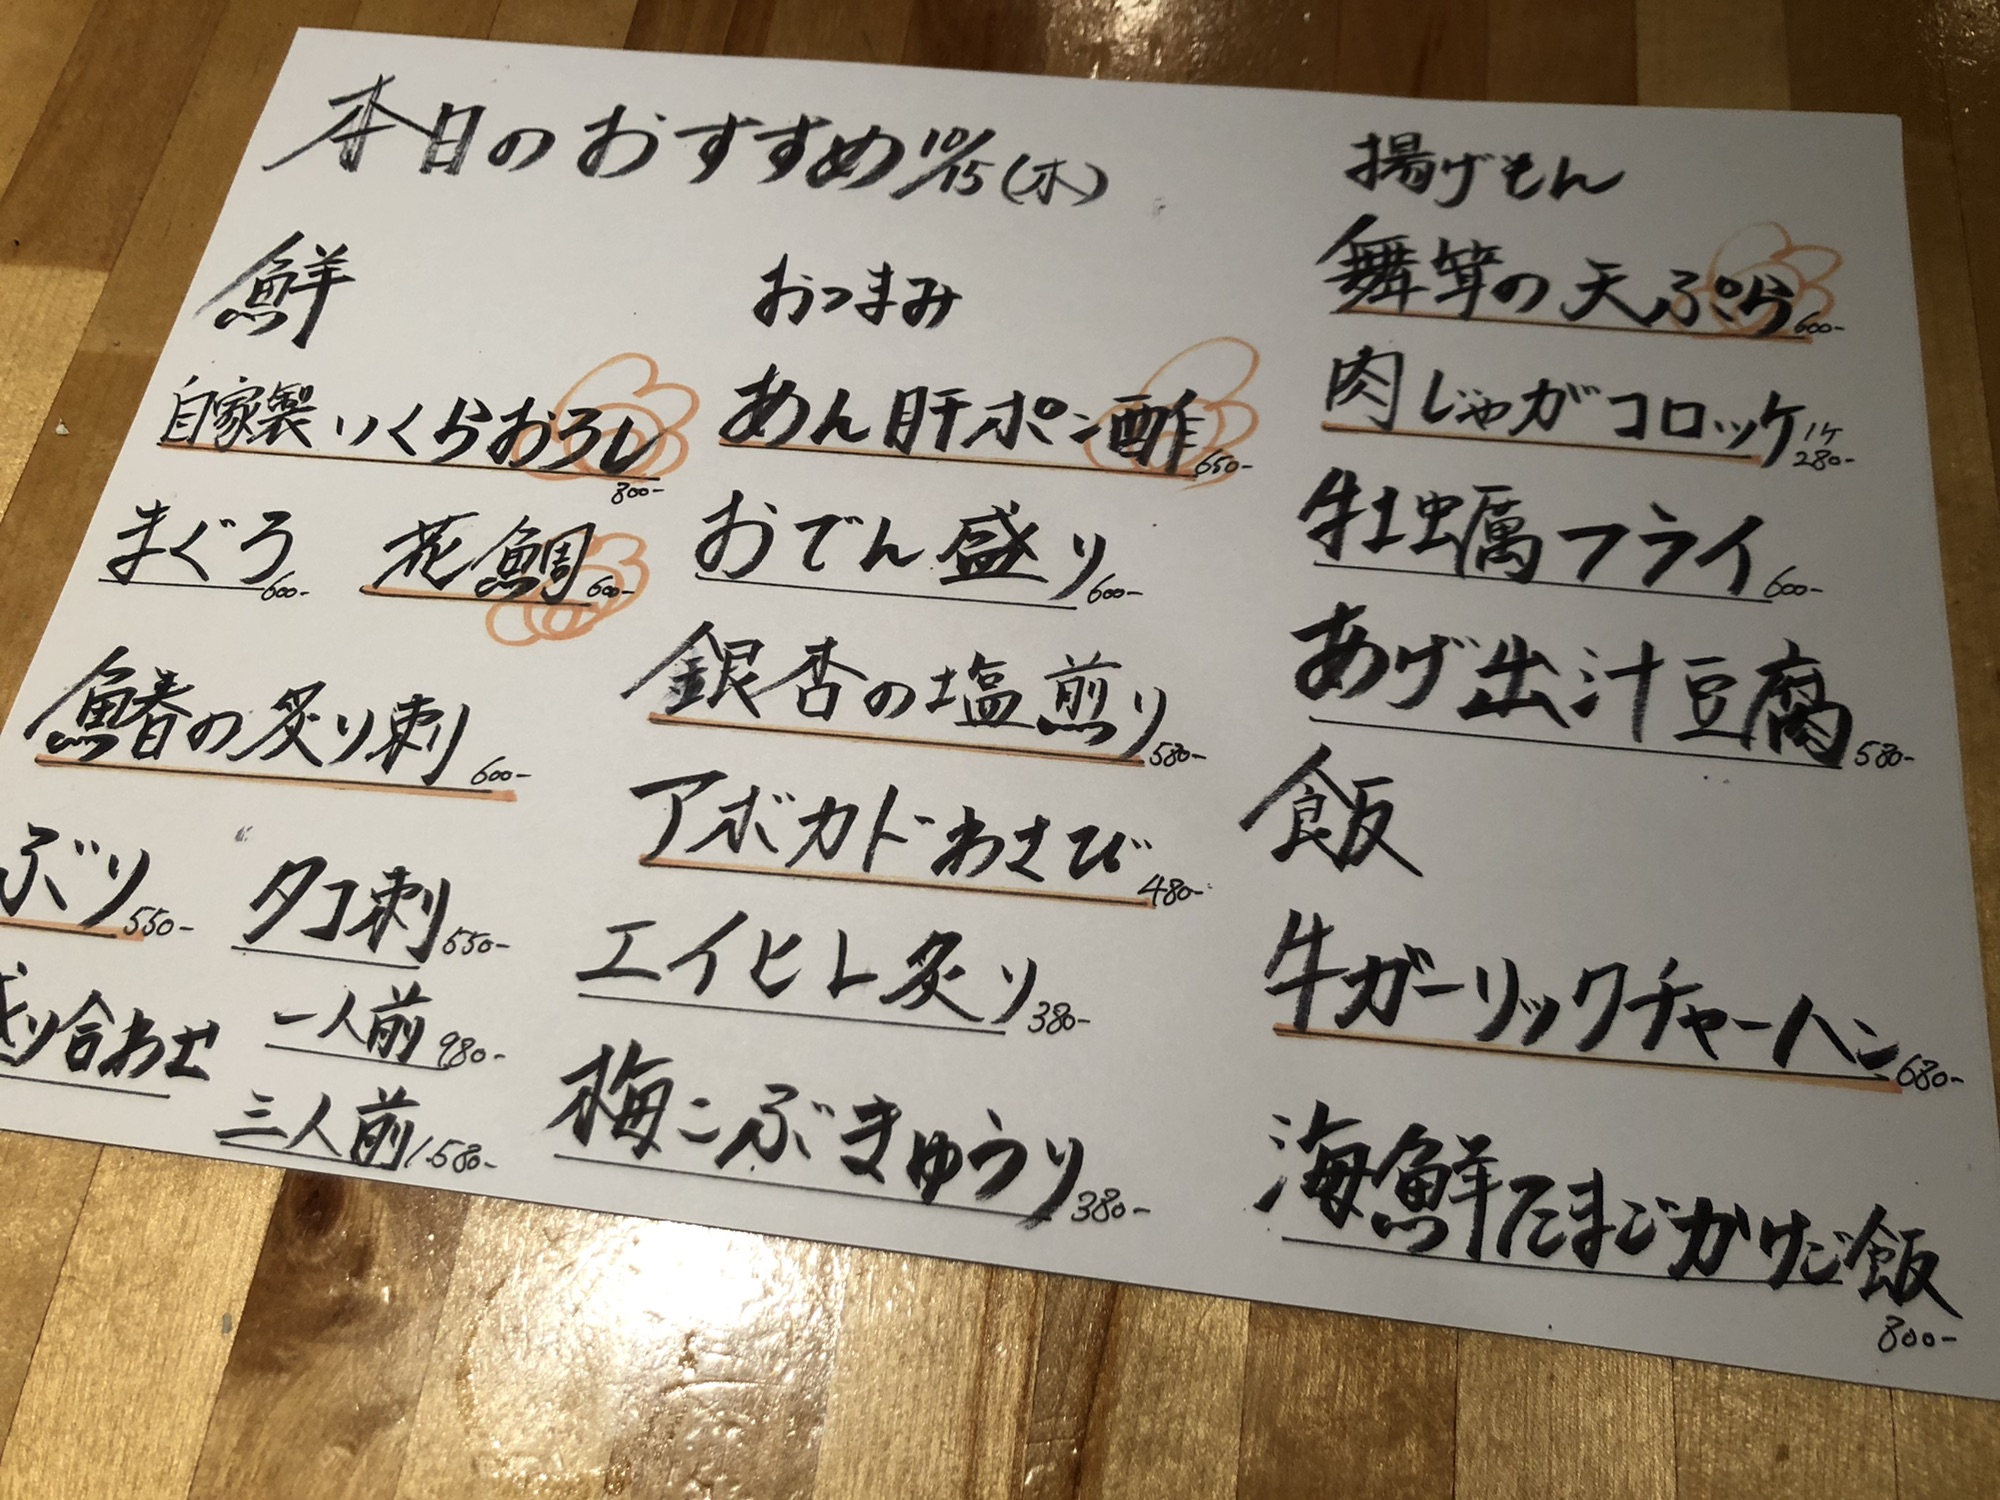 本日のおすすめ10/15(木)
鮮
自家製いくらおろし
800-
まぐろ 600-
花鯛 600-
鰆の炙り刺 600-
ぶり 550-
タコ刺 550-
盛り合わせ 一人前 980-
三人前 1.580-
おつまみ
あん肝ポン酢 650-
おでん盛り 600-
銀杏の塩煎り 580-
アボカドわさび 480-
エイヒレ炙り 380-
梅こぶきゅうり 380-
揚げもん
舞茸の天ぷら 600-
肉じゃがコロッケ 1ケ 280-
牡蠣フライ 600-
あげ出汁豆腐 580-
飯
牛ガーリックチャーハン 680-
海鮮たまごかけご飯
800-